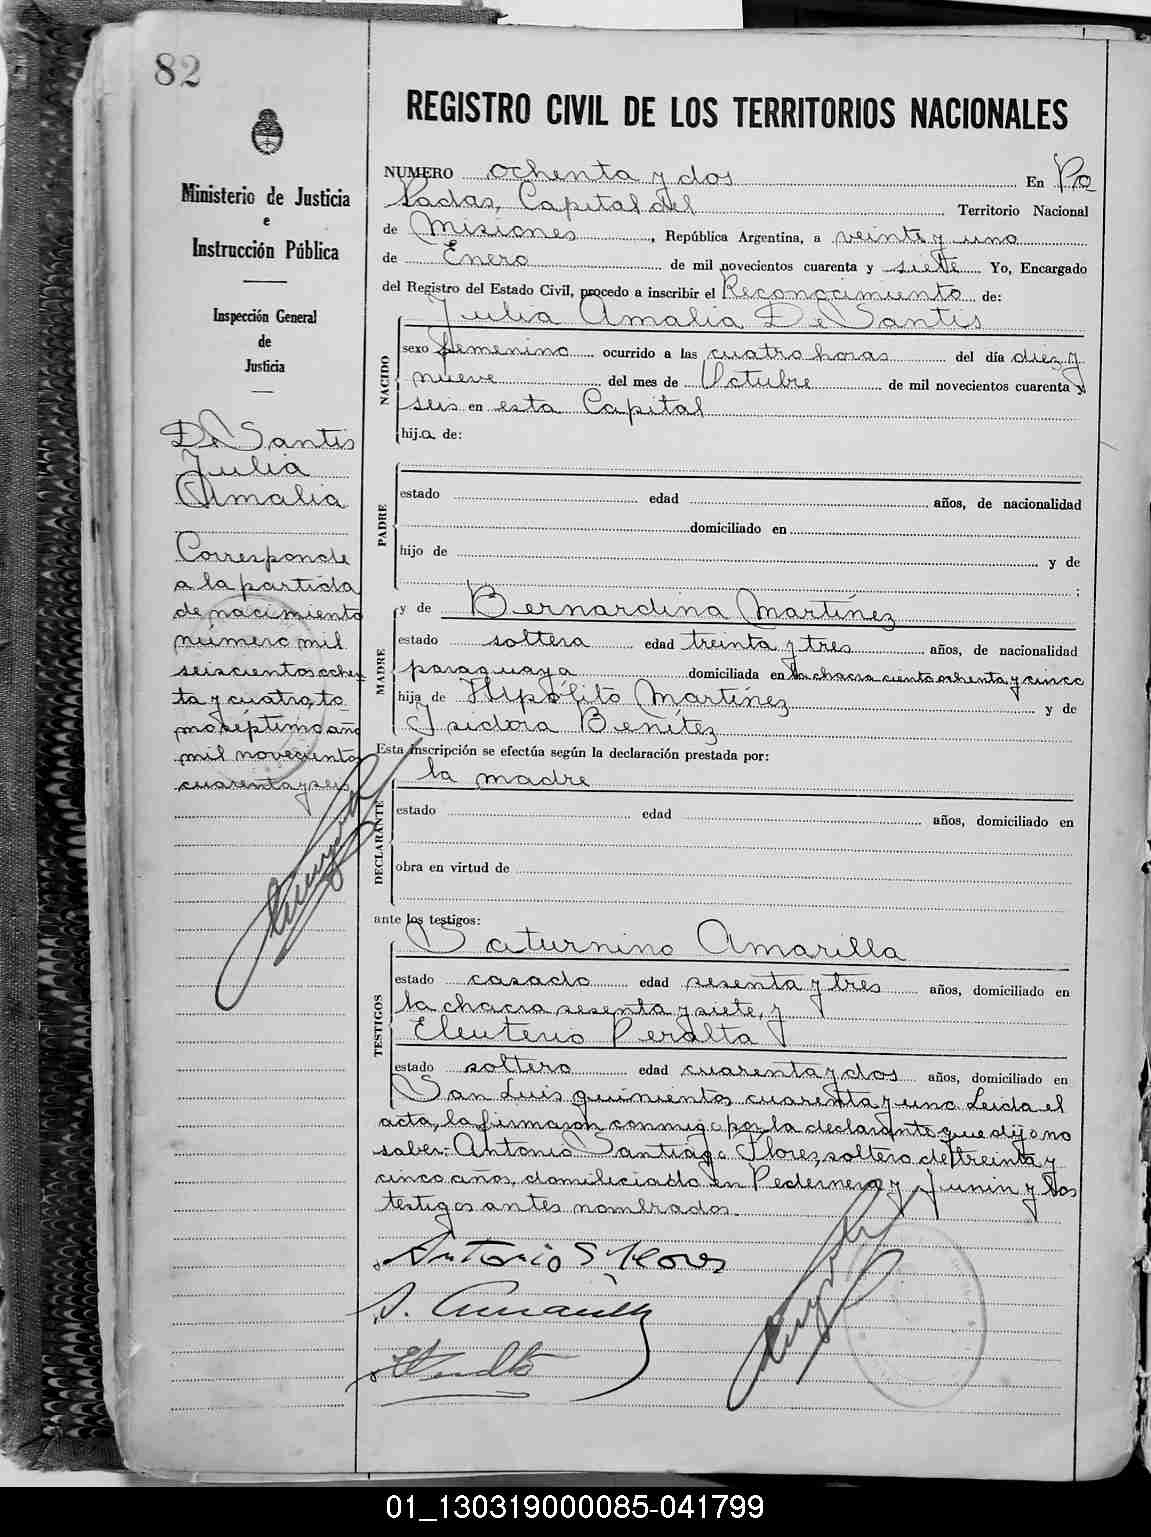 82
REGISTRO CIVIL DE LOS TERRITORIOS NACIONALES
Ministerio de Justicia
e
Instrucción Pública
Inspección General
de
Justicia
De Santis
Julia
Amalia
Corresponde
a la partida
de nacimiento
número mil
seiscientos ochen
ta y cuatro, to
mo séptimo año
mil novecientos
cuarenta y seis
NUMERO ochenta y dos En Po
sadas, Capital del Territorio Nacional
de Misiones, República Argentina, a veinte y uno
de Enero de mil novecientos cuarenta y siete Yo, Encargado
del Registro del Estado Civil, procedo a inscribir el Reconocimiento de:
Julia Amalia De Santis
NACIDO
sexo femenino ocurrido a las cuatro horas del día diez y
nueve del mes de Octubre de mil novecientos cuarenta y
seis en esta Capital
hija de:
PADRE
estado edad años, de nacionalidad
domiciliado en
hijo de y de
;
MADRE
y de Bernardina Martínez
estado soltera edad treinta y tres años, de nacionalidad
paraguaya domiciliada en la chacra ciento ochenta y cinco
hija de Hipólito Martínez y de
Isidora Benítez
Esta inscripción se efectúa según la declaración prestada por:
la madre
DECLARANTE
estado edad años, domiciliado en
obra en virtud de
ante los testigos:
Saturnino Amarilla
TESTIGOS
estado casado edad sesenta y tres años, domiciliado en
la chacra sesenta y siete, y
Eleuterio Peralta
estado soltero edad cuarenta y dos años, domiciliado en
San Luis quinientos cuarenta y uno. Leida el
acta, la firmaron conmigo por la declarante que dijo no
saber: Antonio Santiago Flores, soltero de treinta y
cinco años, domiciliado en Pedernera y Junin y los
testigos antes nombrados.
Antonio S. Flores
S. Amarilla
01_130319000085-041799